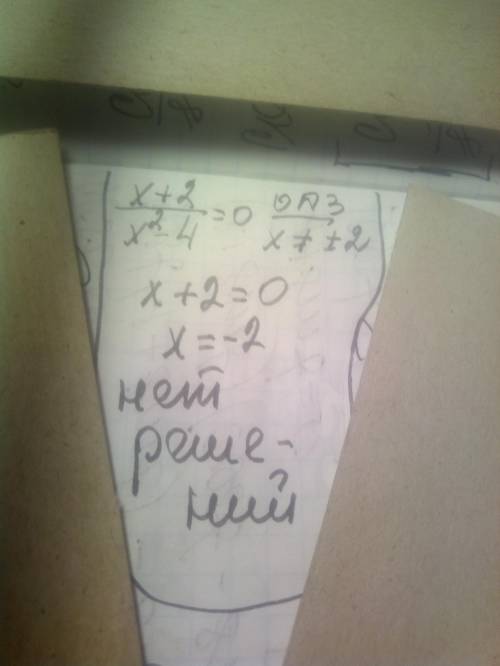 x+2/x²-4 = 0 ОДЗ x ≠ ±2
x+2=0
x=-2
нет
реше-
ний